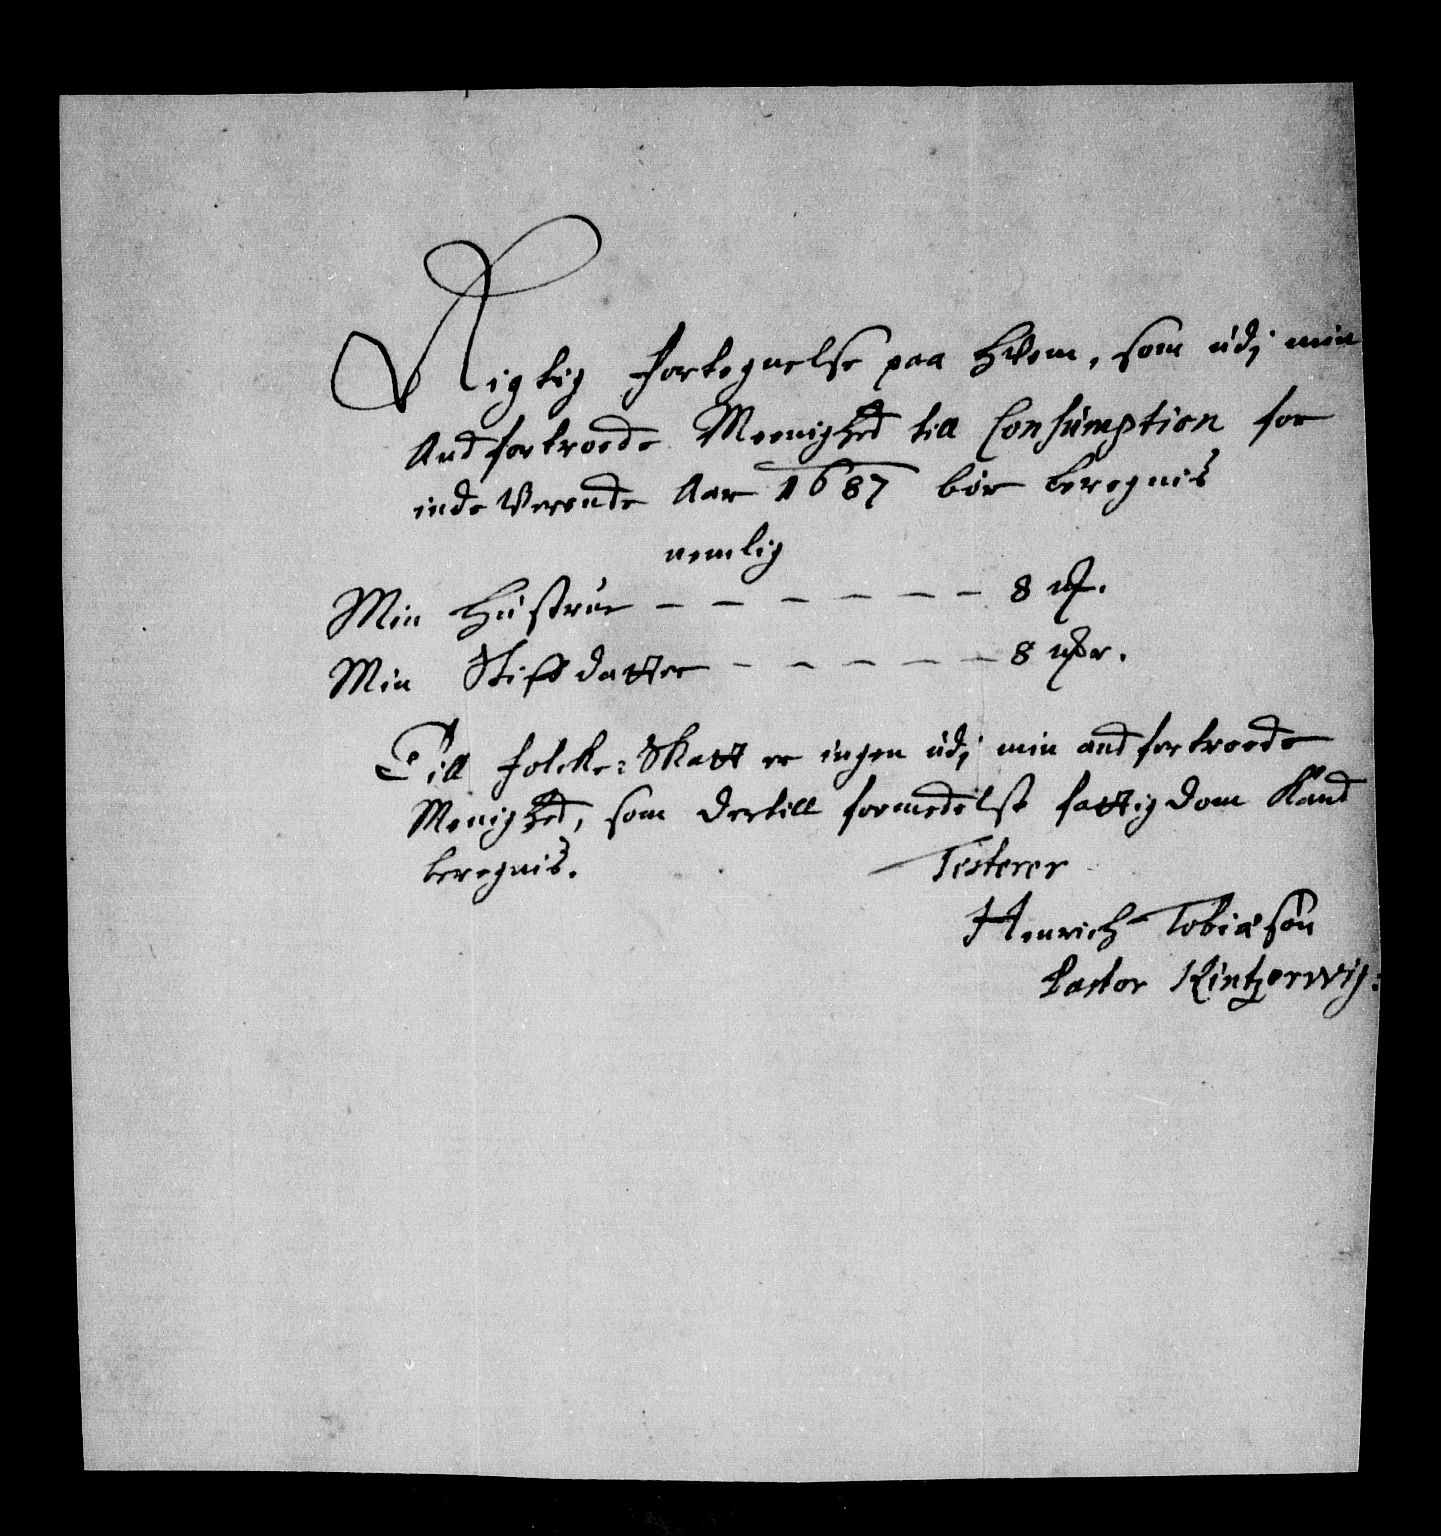 Rigtig Fortegnelse paa hvem, som udj min
Andfortroede Meenighed till Consumption for
inde Verende Aar 1687 bør beregnis
nemlig
Min Hustrue - - - - - - 8
Min Stifdatter - - - - - 8
Till Folcke: Skatt er ingen udj min andfortroede
Menighed, som dertill formedelst fattigdom kand
beregnis. Testerer
Henrich Tobiæsøn
Pastor Kintzerwig: